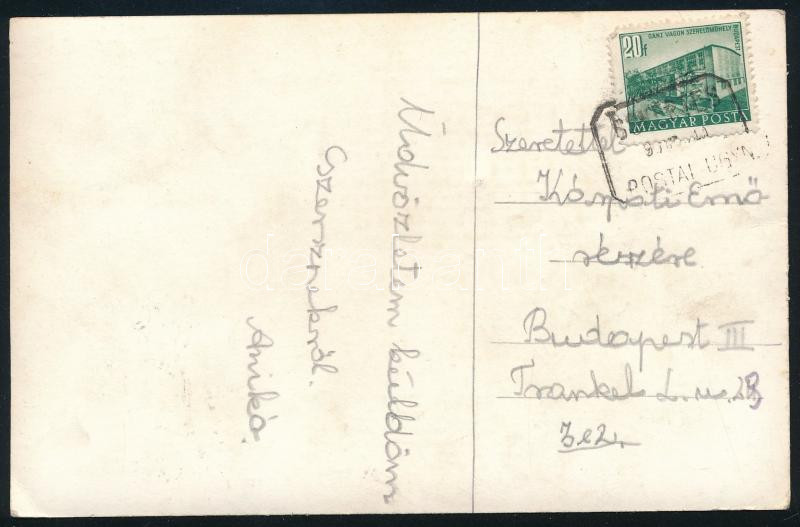 Üdvözletem küldöm
Csesznekről.
Anikó
20f
GANZ VAGON SZERELŐMŰHELY
BUDAPEST
MAGYAR POSTA
POSTAI ÜGYN.
Szeretettel
Kárpáti Ernő
részére
Budapest III
Frankel L. u. 28
darabanth